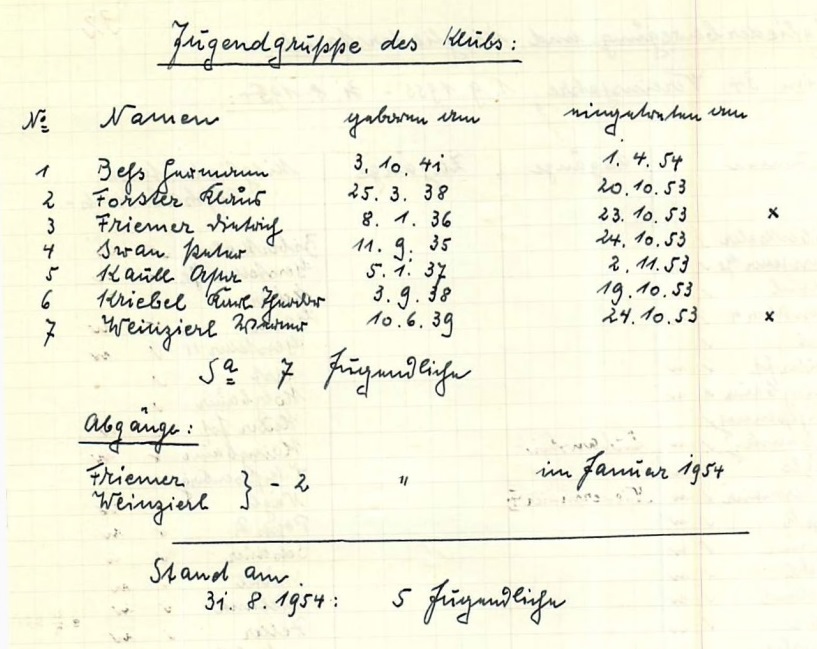 Jugendgruppe des Klubs:
No Namen geboren am eingetreten am
1 Hermann 3. 10. 41 1. 4. 54
2 Forster Klaus 25. 3. 38 20. 10. 53
3 Friemer Dietrich 8. 1. 36 23. 10. 53 x
4 Iwan Peter 11. 9. 35 24. 10. 53
5 Kaull 5. 1. 37 2. 11. 53
6 Kriebel Karl Theodor 3. 9. 38 19. 10. 53
7 Weinzierl Werner 10. 6. 39 24. 10. 53 x
Sa 7 Jugendliche
Abgänge:
Friemer
Weinzierl } - 2 " im Januar 1954
Stand am
31. 8. 1954: 5 Jugendliche